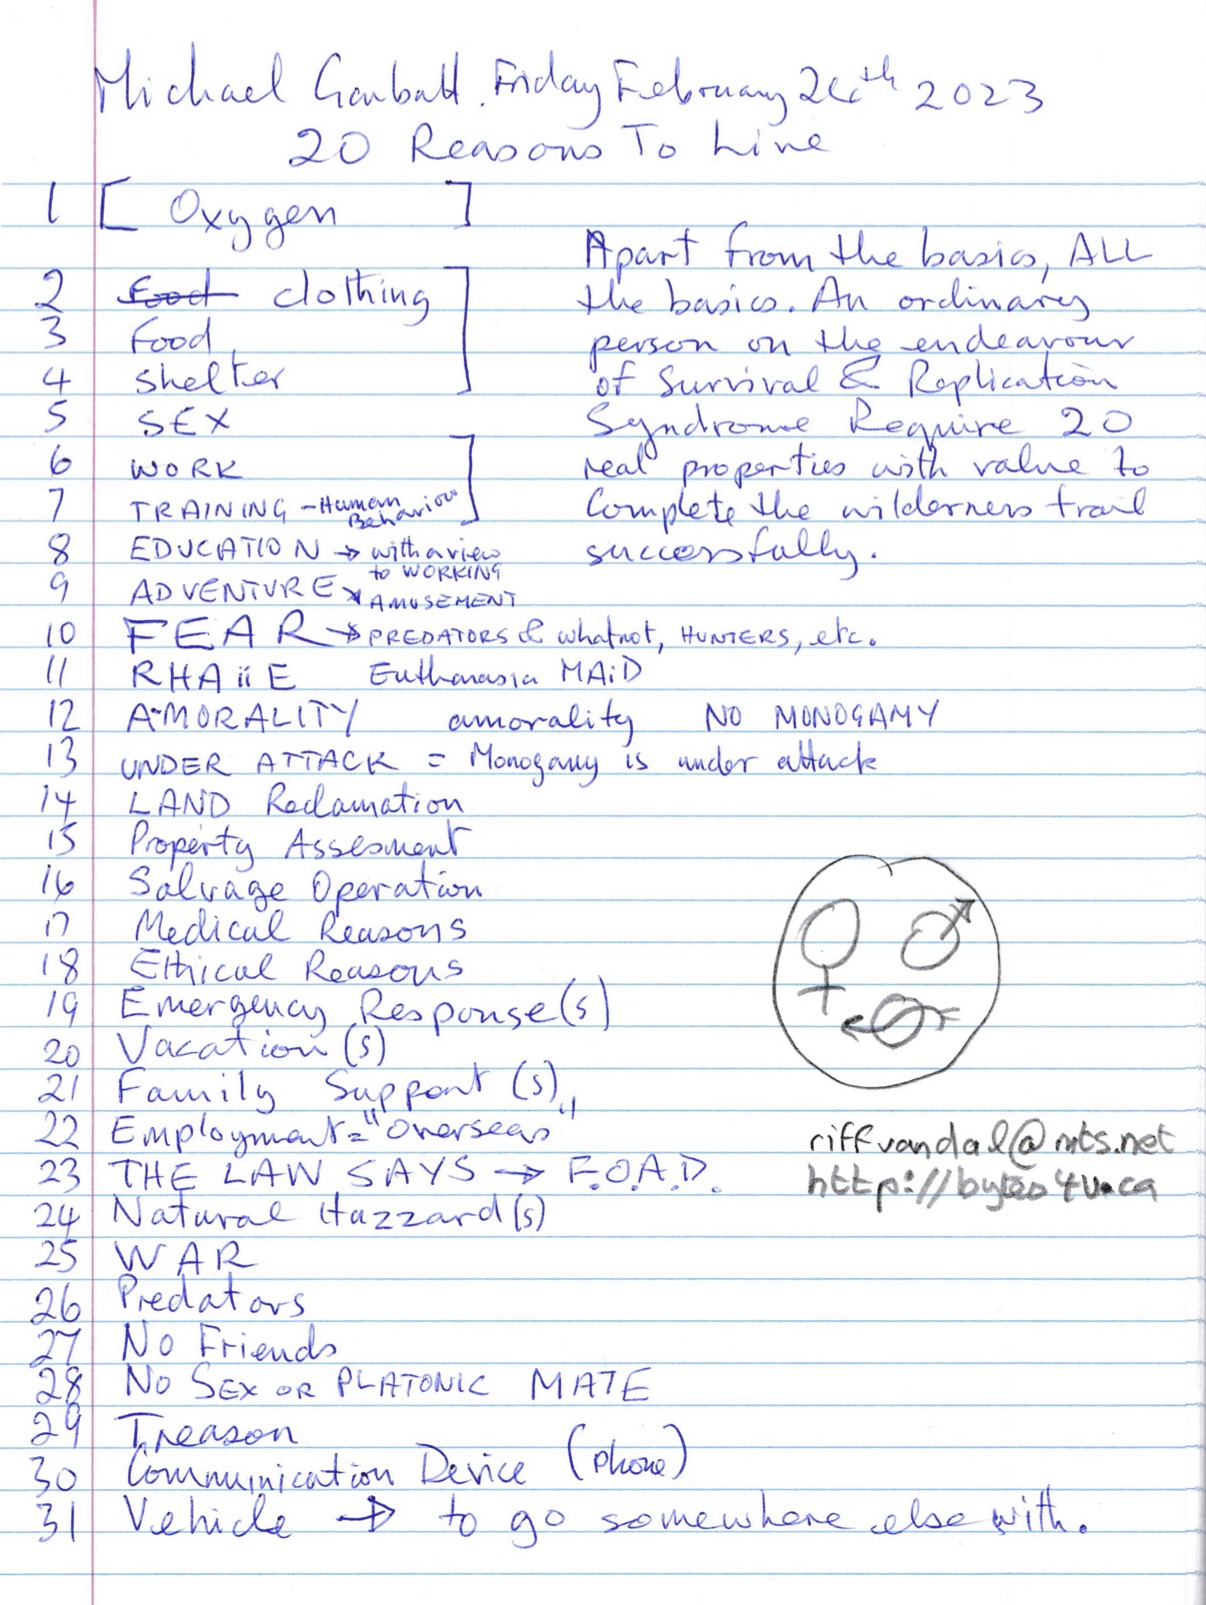 Michael Garbutt. Friday February 24th 2023
20 Reasons To Live
1 [ Oxygen ]
Apart from the basics, ALL
2 food clothing
the basics. An ordinary
3 Food
person on the endeavour
4 Shelter ]
of Survival & Replication
5 SEX
Syndrome Require 20
6 WORK
real properties with value to
7 TRAINING - Human Behaviour ]
Complete the wilderness trail
8 EDUCATION → with a view to WORKING
successfully.
9 ADVENTURE → AMUSEMENT
10 FEAR → PREDATORS & whatnot, HUNTERS, etc.
11 RHAiiE Euthanasia MAiD
12 A-MORALITY amorality NO MONOGAMY
13 UNDER ATTACK = Monogamy is under attack
14 LAND Reclamation
15 Property Assesment
16 Salvage Operation
17 Medical Reasons
18 Ethical Reasons
19 Emergency Response(s)
20 Vacation(s)
21 Family Support(s)
22 Employment = "overseas"
23 THE LAW SAYS → F.O.A.D.
24 Natural Hazzard(s)
25 WAR
26 Predators
27 No Friends
28 NO SEX OR PLATONIC MATE
29 Treason
30 Communication Device (phone)
31 Vehicle → to go somewhere else with.
riffvandal@mts.net
http://bytes4u.ca